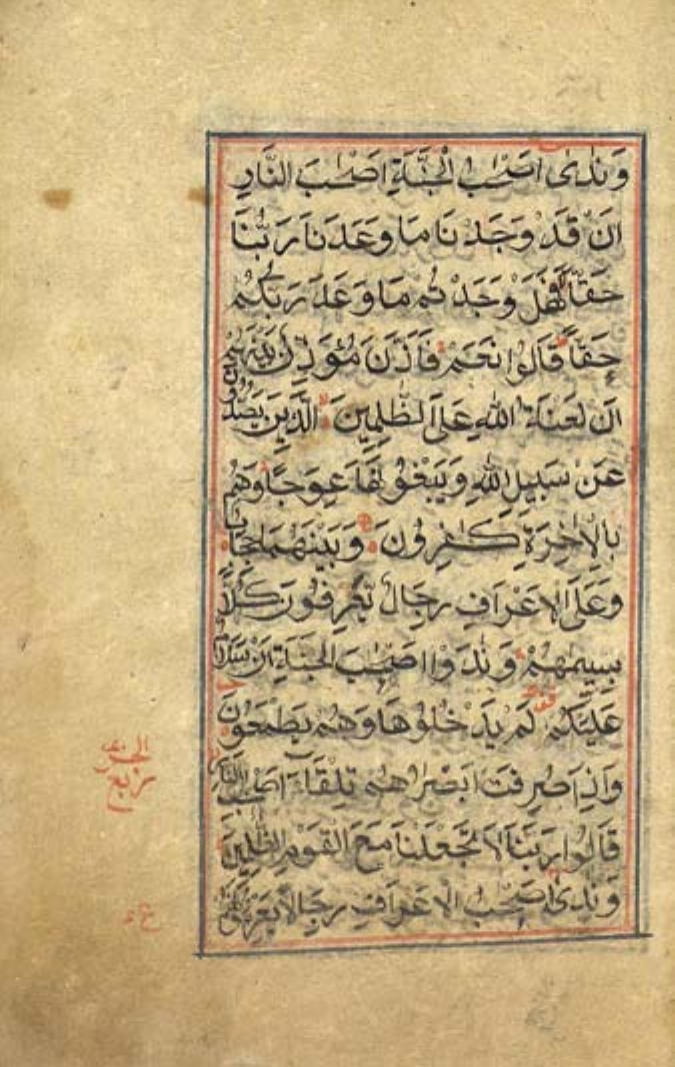 وَنَادٰى اَصْحٰبُ الْجَنَّةِ اَصْحٰبَ النَّارِ
اَنْ قَدْ وَجَدْنَا مَا وَعَدَنَا رَبُّنَا
حَقًّا فَهَلْ وَجَدْتُمْ مَا وَعَدَ رَبُّكُمْ
حَقًّا قَالُوا نَعَمْ فَاَذَّنَ مُؤَذِّنٌ بَيْنَهُمْ
اَنْ لَعْنَةُ اللّٰهِ عَلَى الظّٰلِمِينَ الَّذِينَ يَصُدُّونَ
عَنْ سَبِيلِ اللّٰهِ وَيَبْغُونَهَا عِوَجًا وَهُمْ
بِالْاٰخِرَةِ كٰفِرُونَ وَبَيْنَهُمَا حِجَابٌ
وَعَلَى الْاَعْرَافِ رِجَالٌ يَعْرِفُونَ كُلًّا
بِسِيمٰهُمْ وَنَادَوْا اَصْحٰبَ الْجَنَّةِ اَنْ سَلٰمٌ
عَلَيْكُمْ لَمْ يَدْخُلُوهَا وَهُمْ يَطْمَعُونَ
وَاِذَا صُرِفَتْ اَبْصٰرُهُمْ تِلْقَاءَ اَصْحٰبِ النَّارِ
قَالُوا رَبَّنَا لَا تَجْعَلْنَا مَعَ الْقَوْمِ الظّٰلِمِينَ
وَنَادٰى اَصْحٰبُ الْاَعْرَافِ رِجَالًا يَعْرِفُونَهُمْ
ربع